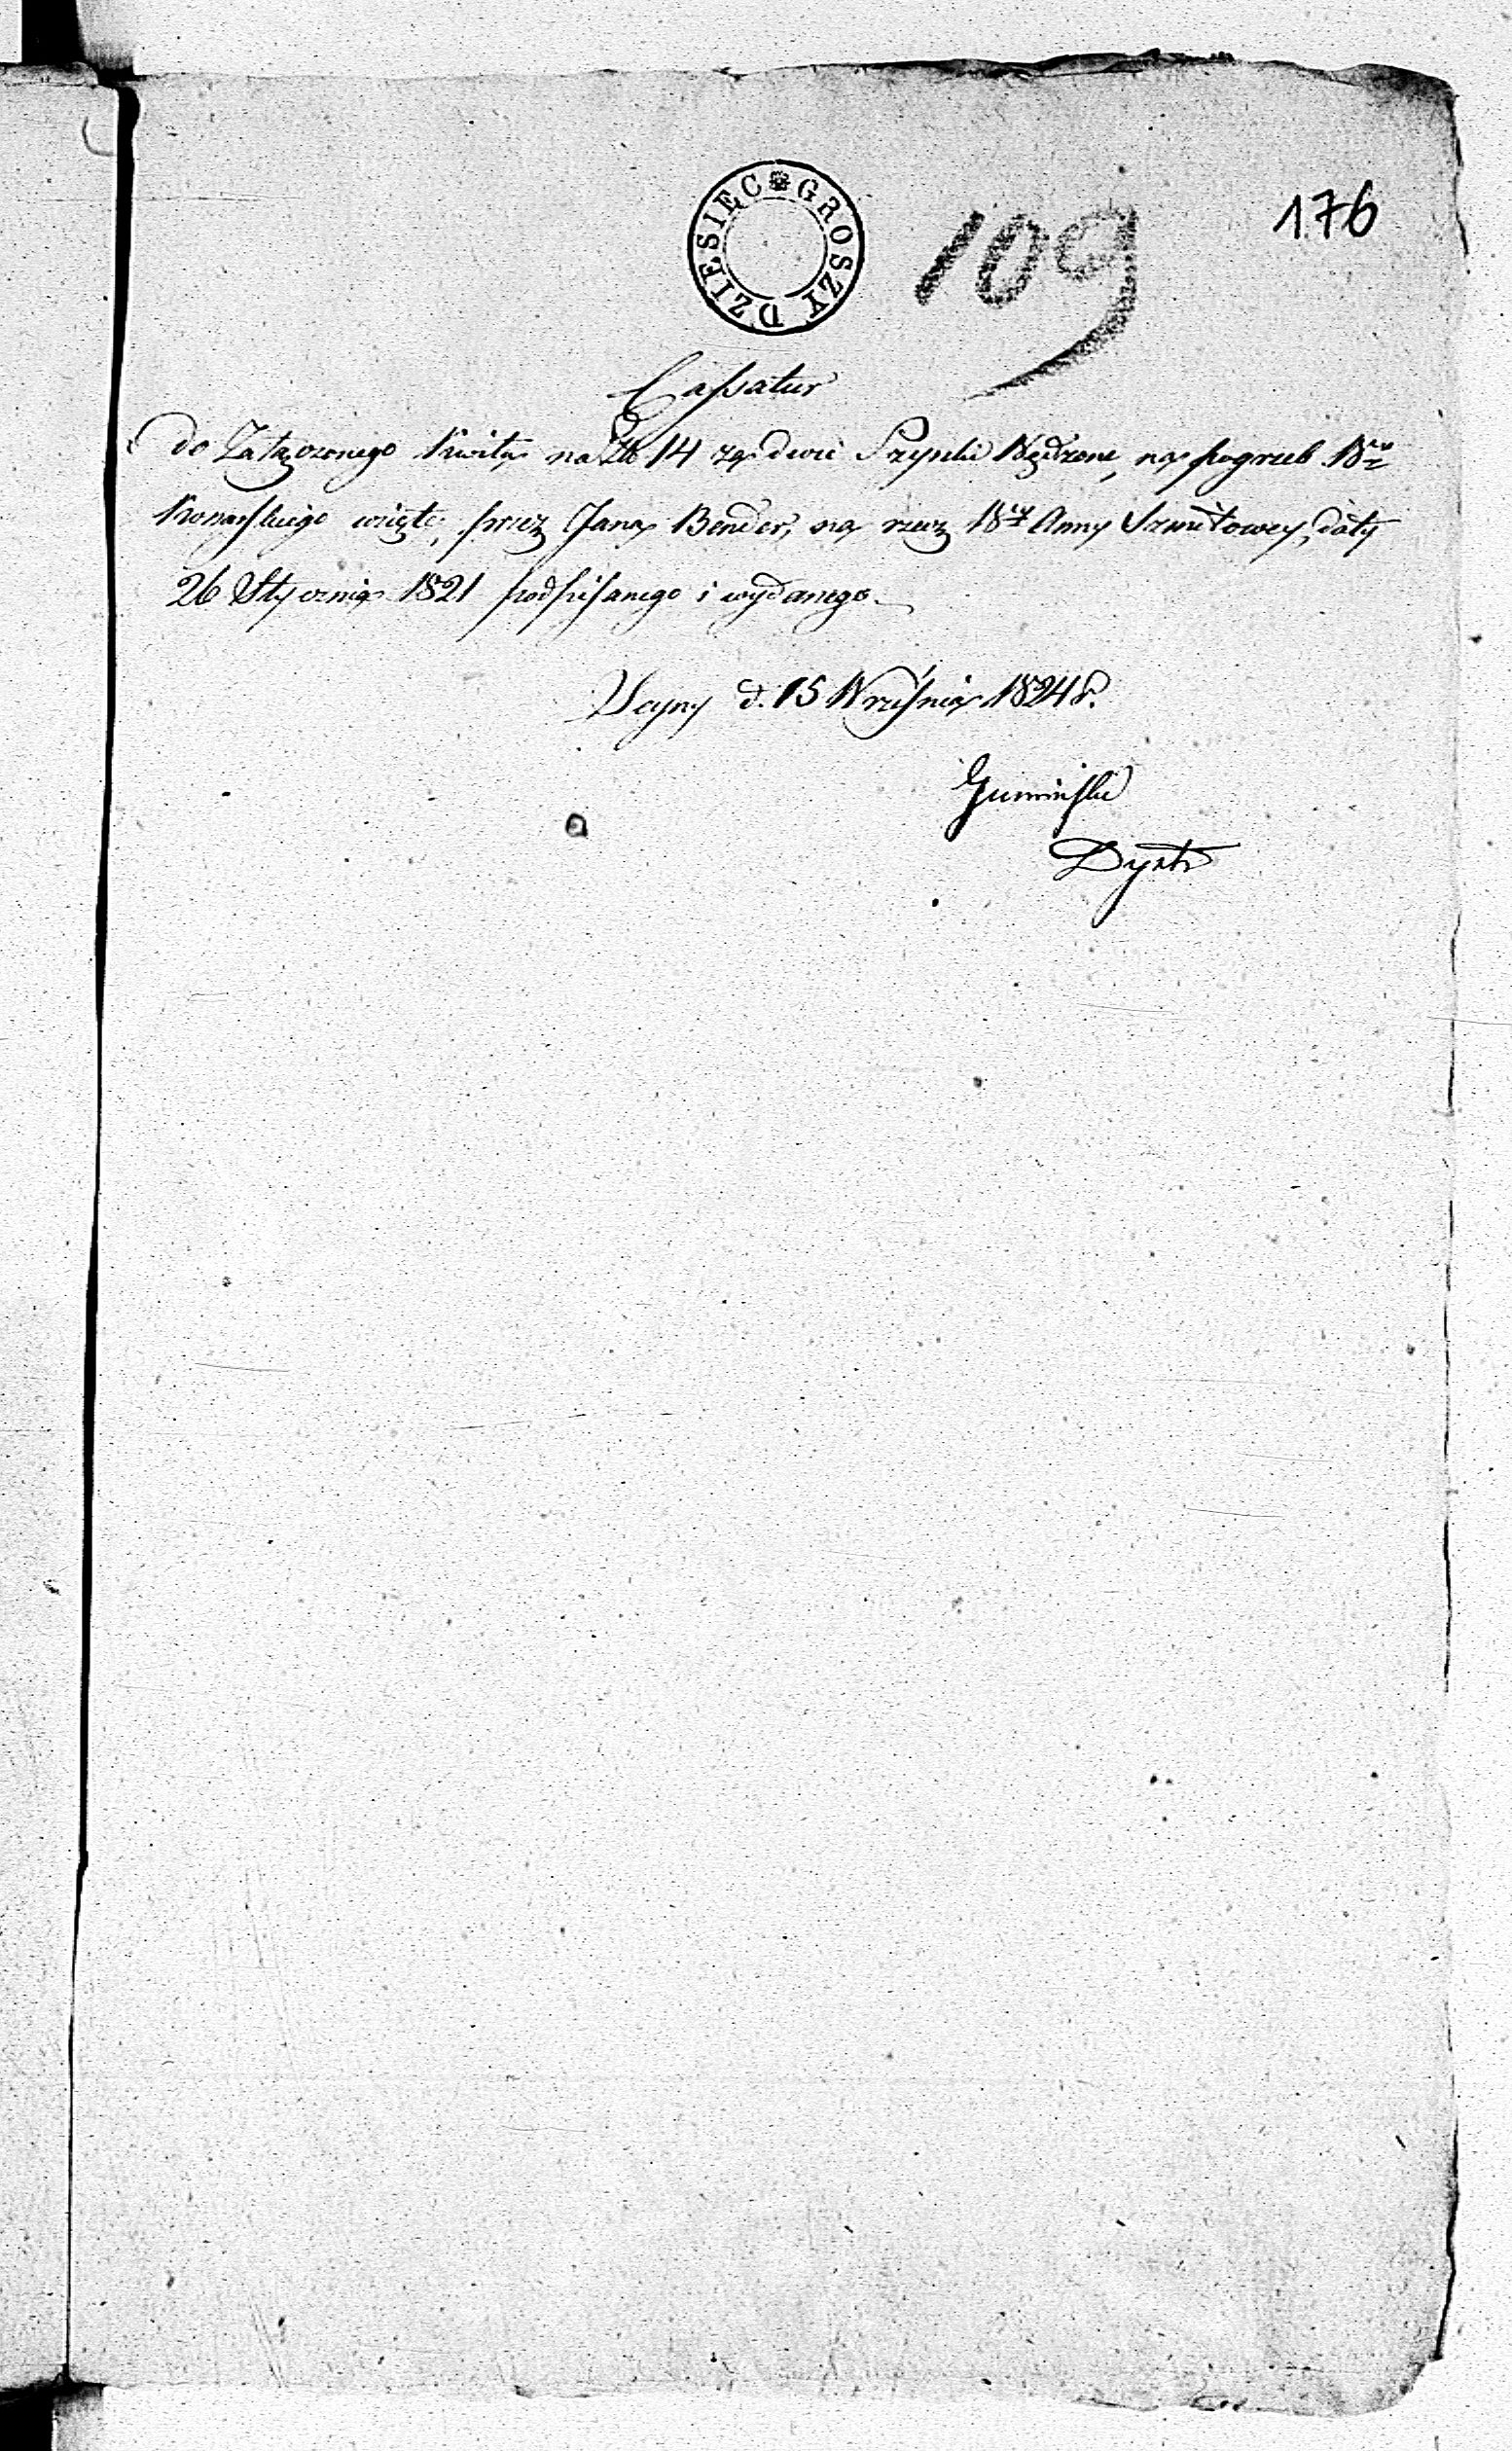 DZIESIĘC GROSZY
109
176
Cassatur
do Załączonego Kwitu na Zł 14 za dwie Szynki Wędzone, na pogrzeb
Konarskiego wzięte, przez Jana Bender, na rzecz Anny Szmitowey, daty
26 Stycznia 1821 podpisanego i wydanego.
d. 15 Września 1824 r.
Guminski